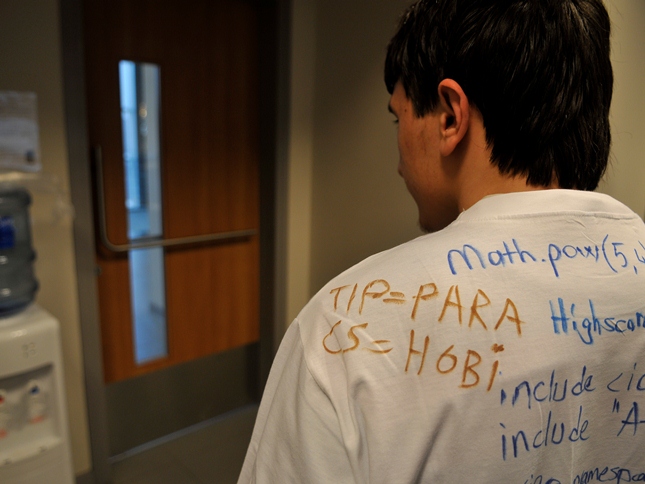 Math.pow(5,
TIP=PARA
CS=HOBİ
Highscor
include <io
include "A-
namespac